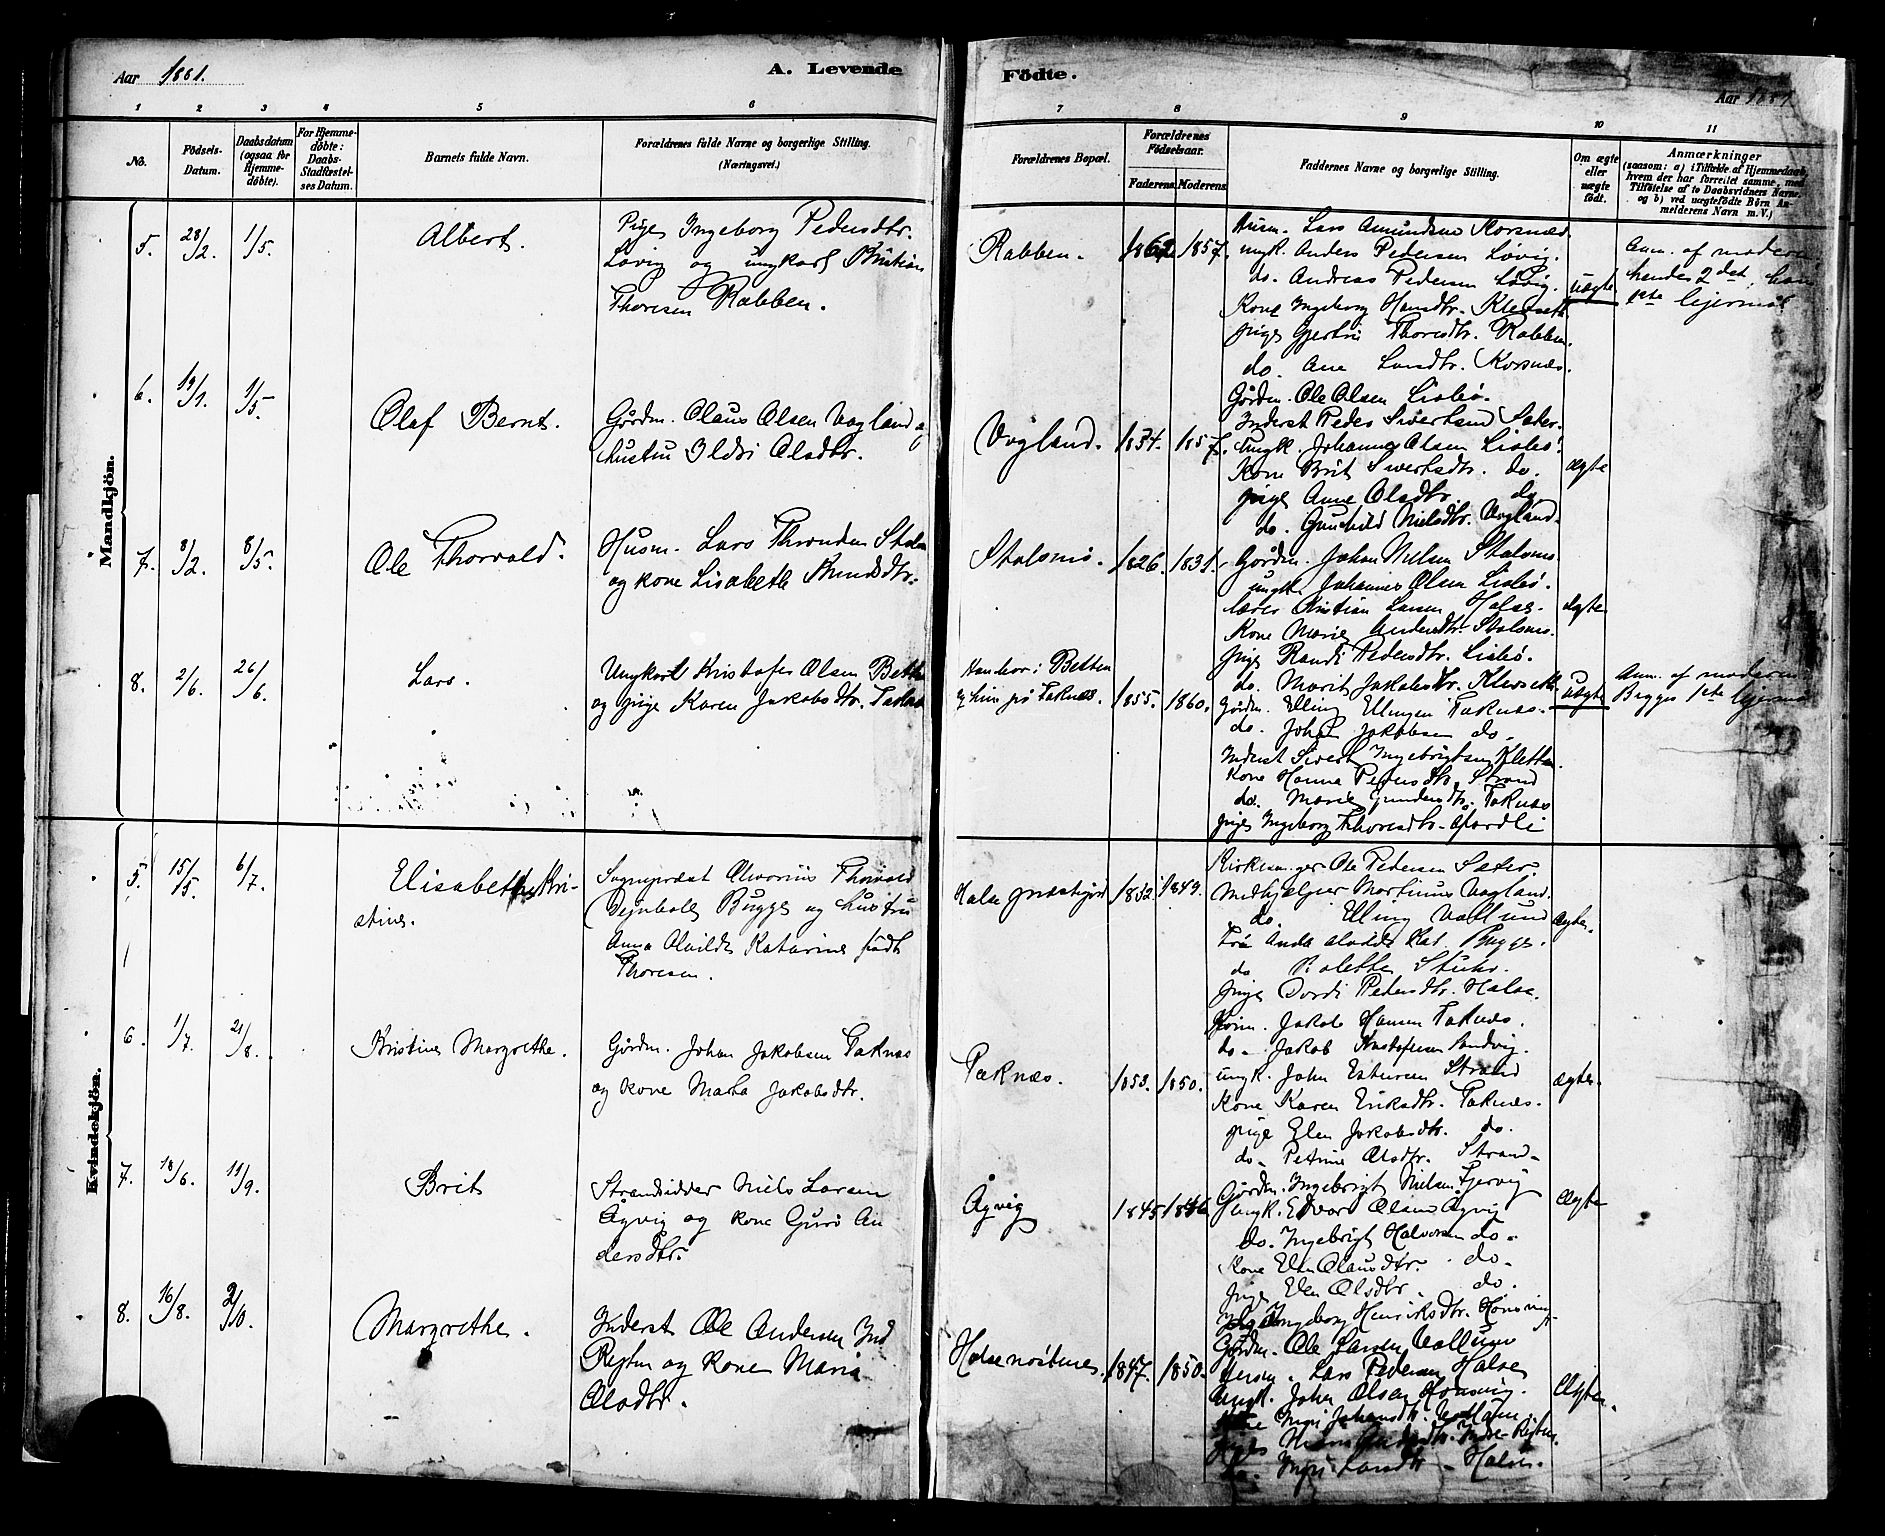 Aar 1881.
A. Levende
Födte.
Aar 1881
1 2 3 4 5 6 7 8 9 10 11
No.
Födsels-
Datum.
Daabsdatum
(ogsaa for
Hjemme-
döbte).
For Hjemme-
döbte:
Daabs-
Stadfæstel-
ses Datum.
Barnets fulde Navn.
Forældrenes fulde Navne og borgerlige Stilling.
(Næringsvei.)
Forældrenes Bopæl.
Forældrenes
Födselsaar.
Faderens. Moderens.
Faddernes Navne og borgerlige Stilling.
Om ægte
eller
uægte
födt.
Anmærkninger
(saasom: a) i Tilfælde af Hjemmedaab,
hvem der har forrettet samme, med
Tilföielse af to Daabsvidners Navne.
og b) ved uægtefödte Börn An-
melderens Navn m. V.)
Mandkjön.
5. 28/2. 1/5. Albert.
Pige Ingeborg Pedersdtr.
Løvig og ungkarl Kristian
Thoresen Rabben.
Rabben. 1862 1857.
Husm. Lars Amundsen Korsnæs.
ungk. Anders Pedersen Løvig.
do. Andreas Pedersen Løvig.
Kone Ingeborg Hansdtr. Klevset
pige Gjertru Thoresdtr. Rabben.
do. Ane Larsdtr. Korsnæs.
uægte.
Anm. af moderen
hendes 2det, hans
1ste lejermål
6. 19/1. 1/5. Olaf Bernt.
Gårdm. Olaus Olsen Vogland og
hustru Ildri Olsdtr.
Vogland. 1834. 1857.
Gårdm. Ole Olsen Lisbö.
Inderst Peder Sivertsen Sæter.
Ungk. Johannes Olsen Lisbö.
Kone Brit Sivertsdtr. do.
pige Anne Olsdtr. do.
do. Gunhild Nielsdtr. Vogland.
ægte
7. 8/2. 8/5. Ole Thorvald.
Husm. Lars Thronden Stols
og kone Lisabeth Knudsdtr.
Stolsmo. 1826. 1831.
Gårdm. Johan Nielsen Stolsmo.
ungk. Johannes Olsen Lisbö.
lærer Kristian Larsen Halse.
Kone Marie Andersdtr. Stolsmo.
pige Randi Pedersdtr. Lisbö.
do. Marit Jakobsdtr. Klevseth
ægte
8. 2/6. 26/6. Lars.
Ungkarl Kristofer Olsen Betten
og pige Karen Jakobsdtr. Taknæs
Han bor i Betten
og hun på Taknæs. 1855. 1860.
Gårdm. Elling Ellingsen Taknæs.
do. Johan Jakobsen do.
Inderst Sivert Ingebrigtsen Kletten.
Kone Hanna Pedersdtr. Strand
do. Marie Gundersdtr. Taknæs
pige Ingeborg Thoresdtr.
uægte
Anm. af moderen
Begges 1ste lejermål
Kvindekjön.
5. 15/5. 6/7. Elisabeth Kri-
stine.
Sogneprest Thorvald
Dejnboll Bugge og hustru
Anna Alvilde Katarine född
Thoresen.
Halse prestegård 1832. 1849.
Kirkesanger Ole Pedersen Sæter.
Medhjælper Martinus Vogland.
do. Elling Vollund
Fru Kat. Bugge.
do Stuhr.
pige Dordi Pedersdtr. Halse.
ægte.
6. 1/7. 21/8. Kristine Margrethe.
Gårdm. Johan Jakobsen Taknæs
og kone Marta Jakobsdtr.
Taknæs. 1853. 1850.
Jakob Hansen Taknæs.
do. Jakob Kristofersen Sandvig.
ungk. John Estensen Strand
Kone Karen Eriksdtr. Taknæs.
pige Elen Jakobsdtr. do.
do. Petrine Olsdtr. Strand.
ægte.
7. 18/6. 11/9. Brit
Strandsidder Niels Larsen
Ågvig og kone Guro An
dersdtr.
Ågvig 1845 1846
Gårdm. Ingebrigt Nielsen Fjervig
Ungk. Edvard Olsen Ågvig
do. Ingebrigt Halvorsen do.
Kone Elen Olausdtr. do.
pige Elen Olsdtr. do.
Ingeborg Henriksdtr. Honsvig
ægte
8. 16/8. 2/10. Margrethe.
Inderst Ole Andersen Ind
Rejten og kone Marie
Olsdtr.
Halsenöstene. 1847. 1850.
Gårdm. Ole Larsen Vollund
Husm. Lars Pedersen Halse
Ungk. John Olsen Honsvig.
Kone Ingri Johansdtr.
Indre-Rejten.
do. Ingri Larsdtr. Halse.
ægte.